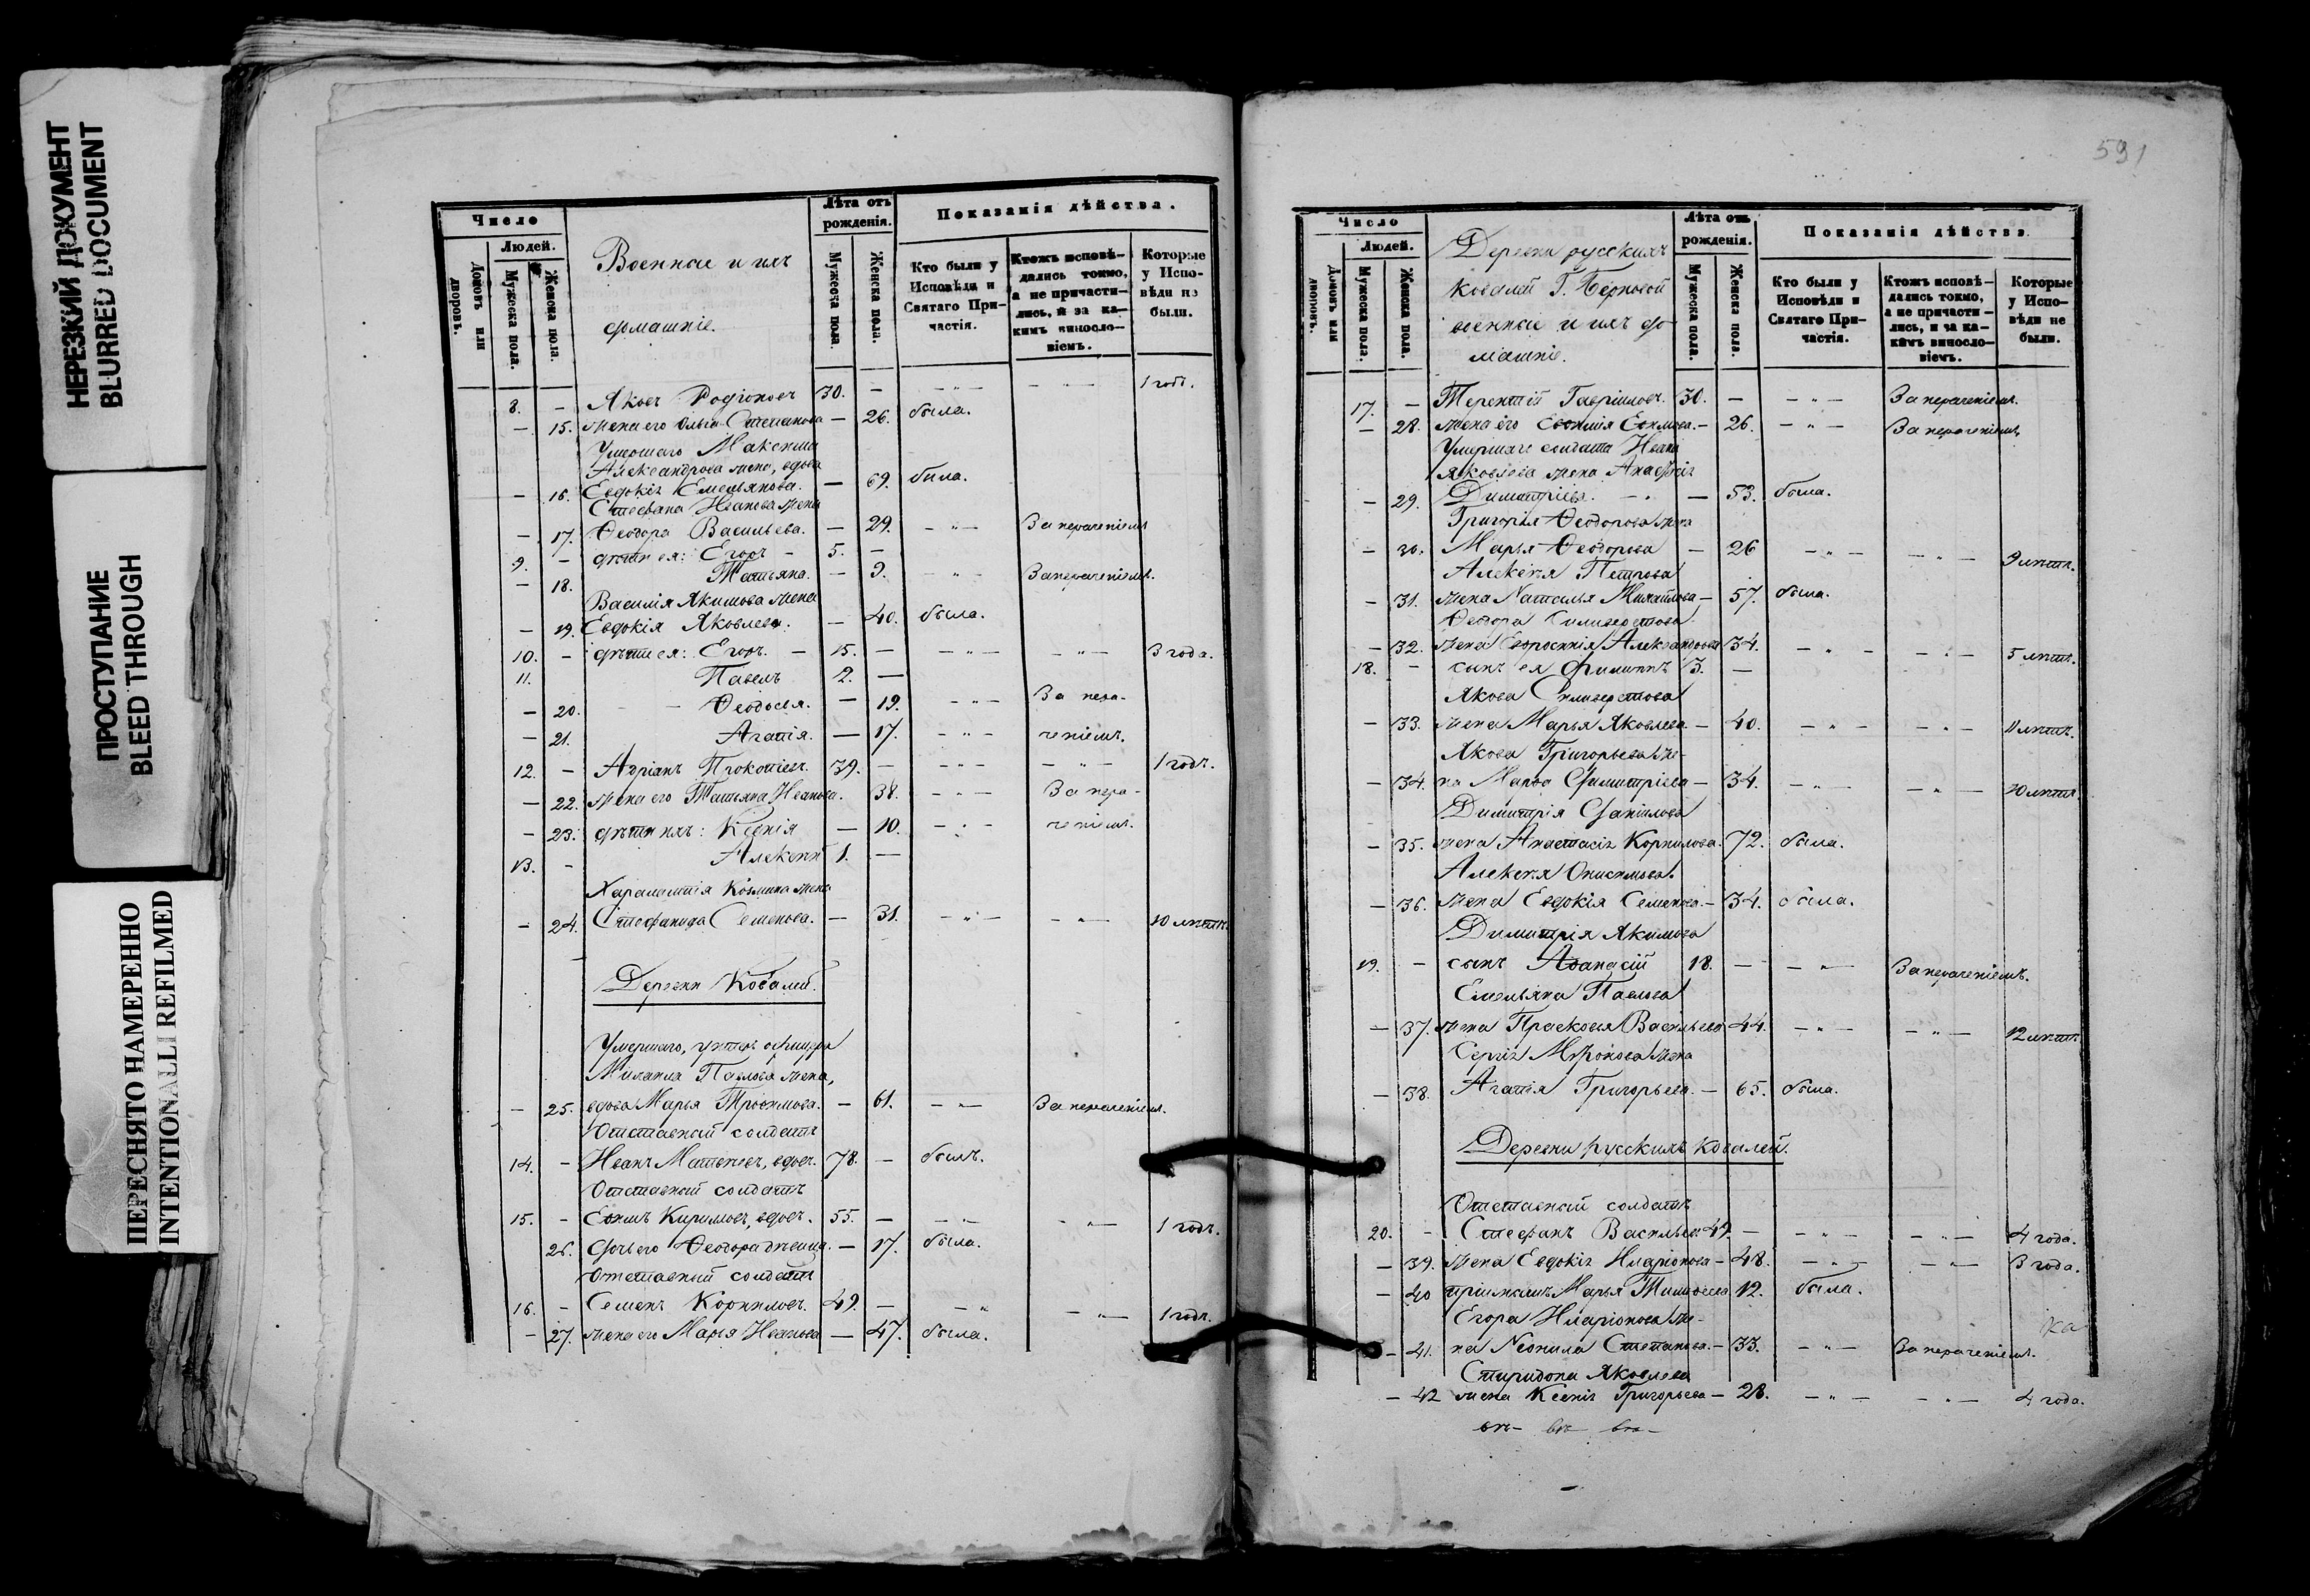 НЕРЕЗКИЙ ДОКУМЕНТ
BLURRED DOCUMENT
ПРОСТУПАНИЕ
BLEED THROUGH
ПЕРЕСНЯТО НАМЕРЕННО
INTENTIONALLI REFILMED
Число
Людей.
Домовъ или дворовъ.
Мужеска пола.
Женска пола.
Военные и ихъ
домашніе.
Лѣта отъ рожденія.
Мужеска пола.
Женска пола.
Показанія дѣйства.
Кто были у Исповѣди и Святаго Причастія.
Ктожъ исповѣдались токмо, а не причастились, и за какимъ винословіемъ.
Которые у Исповѣди не были.
8. – Яковъ Родіоновъ 30. – – „ – – „ – 1 годъ.
– 15. Жена его Ольга Степанова – 26. была.
Умершаго Максима
Александрова жена, вдова
– 16. Евдокія Емельянова. – 69. была.
Стефана Иванова жена
– 17. Ѳеодора Васильева. – 29. – „ – За нераченіемъ
9. – дѣти ея: Егоръ – 5. –
– 18. Татьяна. – 9. „ – За нераченіемъ.
Василія Якимова жена
– 19. Евдокія Яковлева. – 40. была.
10. – дѣти ея: Егоръ. – 15. – – „ – – „ – 3 года.
11. Павелъ 2. –
– 20. – – Ѳеодосья. – 19. – „ – За нера-
– 21. Агапія. – 17. – „ – ченіемъ.
12. – Адріанъ Прокопіевъ. 39. – – „ – – „ – 1 годъ.
– 22. Жена его Татьяна Иванова. 38. – „ – За нера-
– 23. дѣти ихъ: Ксенія – 10. – „ – ченіемъ.
13. – Алексѣй 1. –
Харалампія Козмина жена
– 24. Стефанида Семенова. – 31. – „ – – „ – 10 лѣтъ.
Деревни Ковалей.
Умершаго, унтеръ офицера
Павлова жена,
– 25. вдова Марья Трофимова. – 61. – „ – За нераченіемъ.
Отставный солдатъ
14. – Иванъ Матвѣевъ, вдовъ. 78. – былъ.
Отставный солдатъ
15. – Ефимъ Кириловъ, вдовъ. 55. – – „ – – „ – 1 годъ.
26. Дочь его Ѳеодора дѣвица. – 17. была.
Отставный солдатъ
16. – Семенъ Корниловъ. 49. – – „ – „ – 1 годъ.
– 27. Жена его Марья Иванова – 47. была.
591
Число
Людей.
Домовъ или дворовъ.
Мужеска пола.
Женска пола.
Деревни русскихъ
Ковалей Г.
военные и ихъ до-
машніе.
Лѣта отъ рожденія.
Мужеска пола.
Женска пола.
Показанія дѣйства
Кто были у Исповѣди и Святаго Причастія.
Ктожъ исповѣдались токмо, а не причастились, и за какимъ винословіемъ.
Которые у Исповѣди не были.
17. – Терентій Гавріиловъ. 30. – – „ – За нераченіемъ.
– 28. Жена его Евфимія Ефимова. – 26. – „ – За нераченіемъ.
Умершаго солдата Ивана
Яковлева жена
– 29. Димитріева. – – 53. была.
Григорія Ѳеодорова жена
– 30. Марья Ѳеодорова – 26 – „ – – „ – 9 лѣтъ.
Алексѣя Петрова
– 31. жена Наталья Михайлова – 57. была.
Ѳеодора Силиверстова
– 32. жена Евфросинія Александрова 34. – „ – – „ – 5 лѣтъ.
18. – сынъ ея Филиппъ 3. –
Якова Силиверстова
– 33. жена Марья Яковлева. – 40. – „ – – „ – 11 лѣтъ.
Якова Григорьева же-
– 34. на Марфа Димитріева – 34. – „ – – „ – 10 лѣтъ.
Димитрія Даниілова
– 35. жена Анастасія Корнилова. 72. была.
Алексѣя Онисимова.
– 36. жена Евдокія Семенова. – 34. была.
Димитрія Якимова
19. – сынъ Аѳанасій 18. – – „ – За нераченіемъ.
Емельяна Павлова
– 37. жена Прасковья Васильева 44. – „ – – „ – 12 лѣтъ
Сергія Миронова жена
– 38. Агапія Григорьева. – 65. была.
Деревни русскихъ Ковалей.
Отставный солдатъ
20. – Стефанъ Васильевъ 49. – – „ – – „ – 4 года.
– 39. Жена Евдокія Иларіонова – 48. – „ – – „ – 3 года.
– 40 Марья Тимофеева 12. была.
Егора Иларіонова же-
– 41. на Неонила Степанова. – 33. – „ – За нераченіемъ.
Спиридона Яковлева
– 42 жена Ксенія Григорьева – 28. – „ – – „ – 4 года.